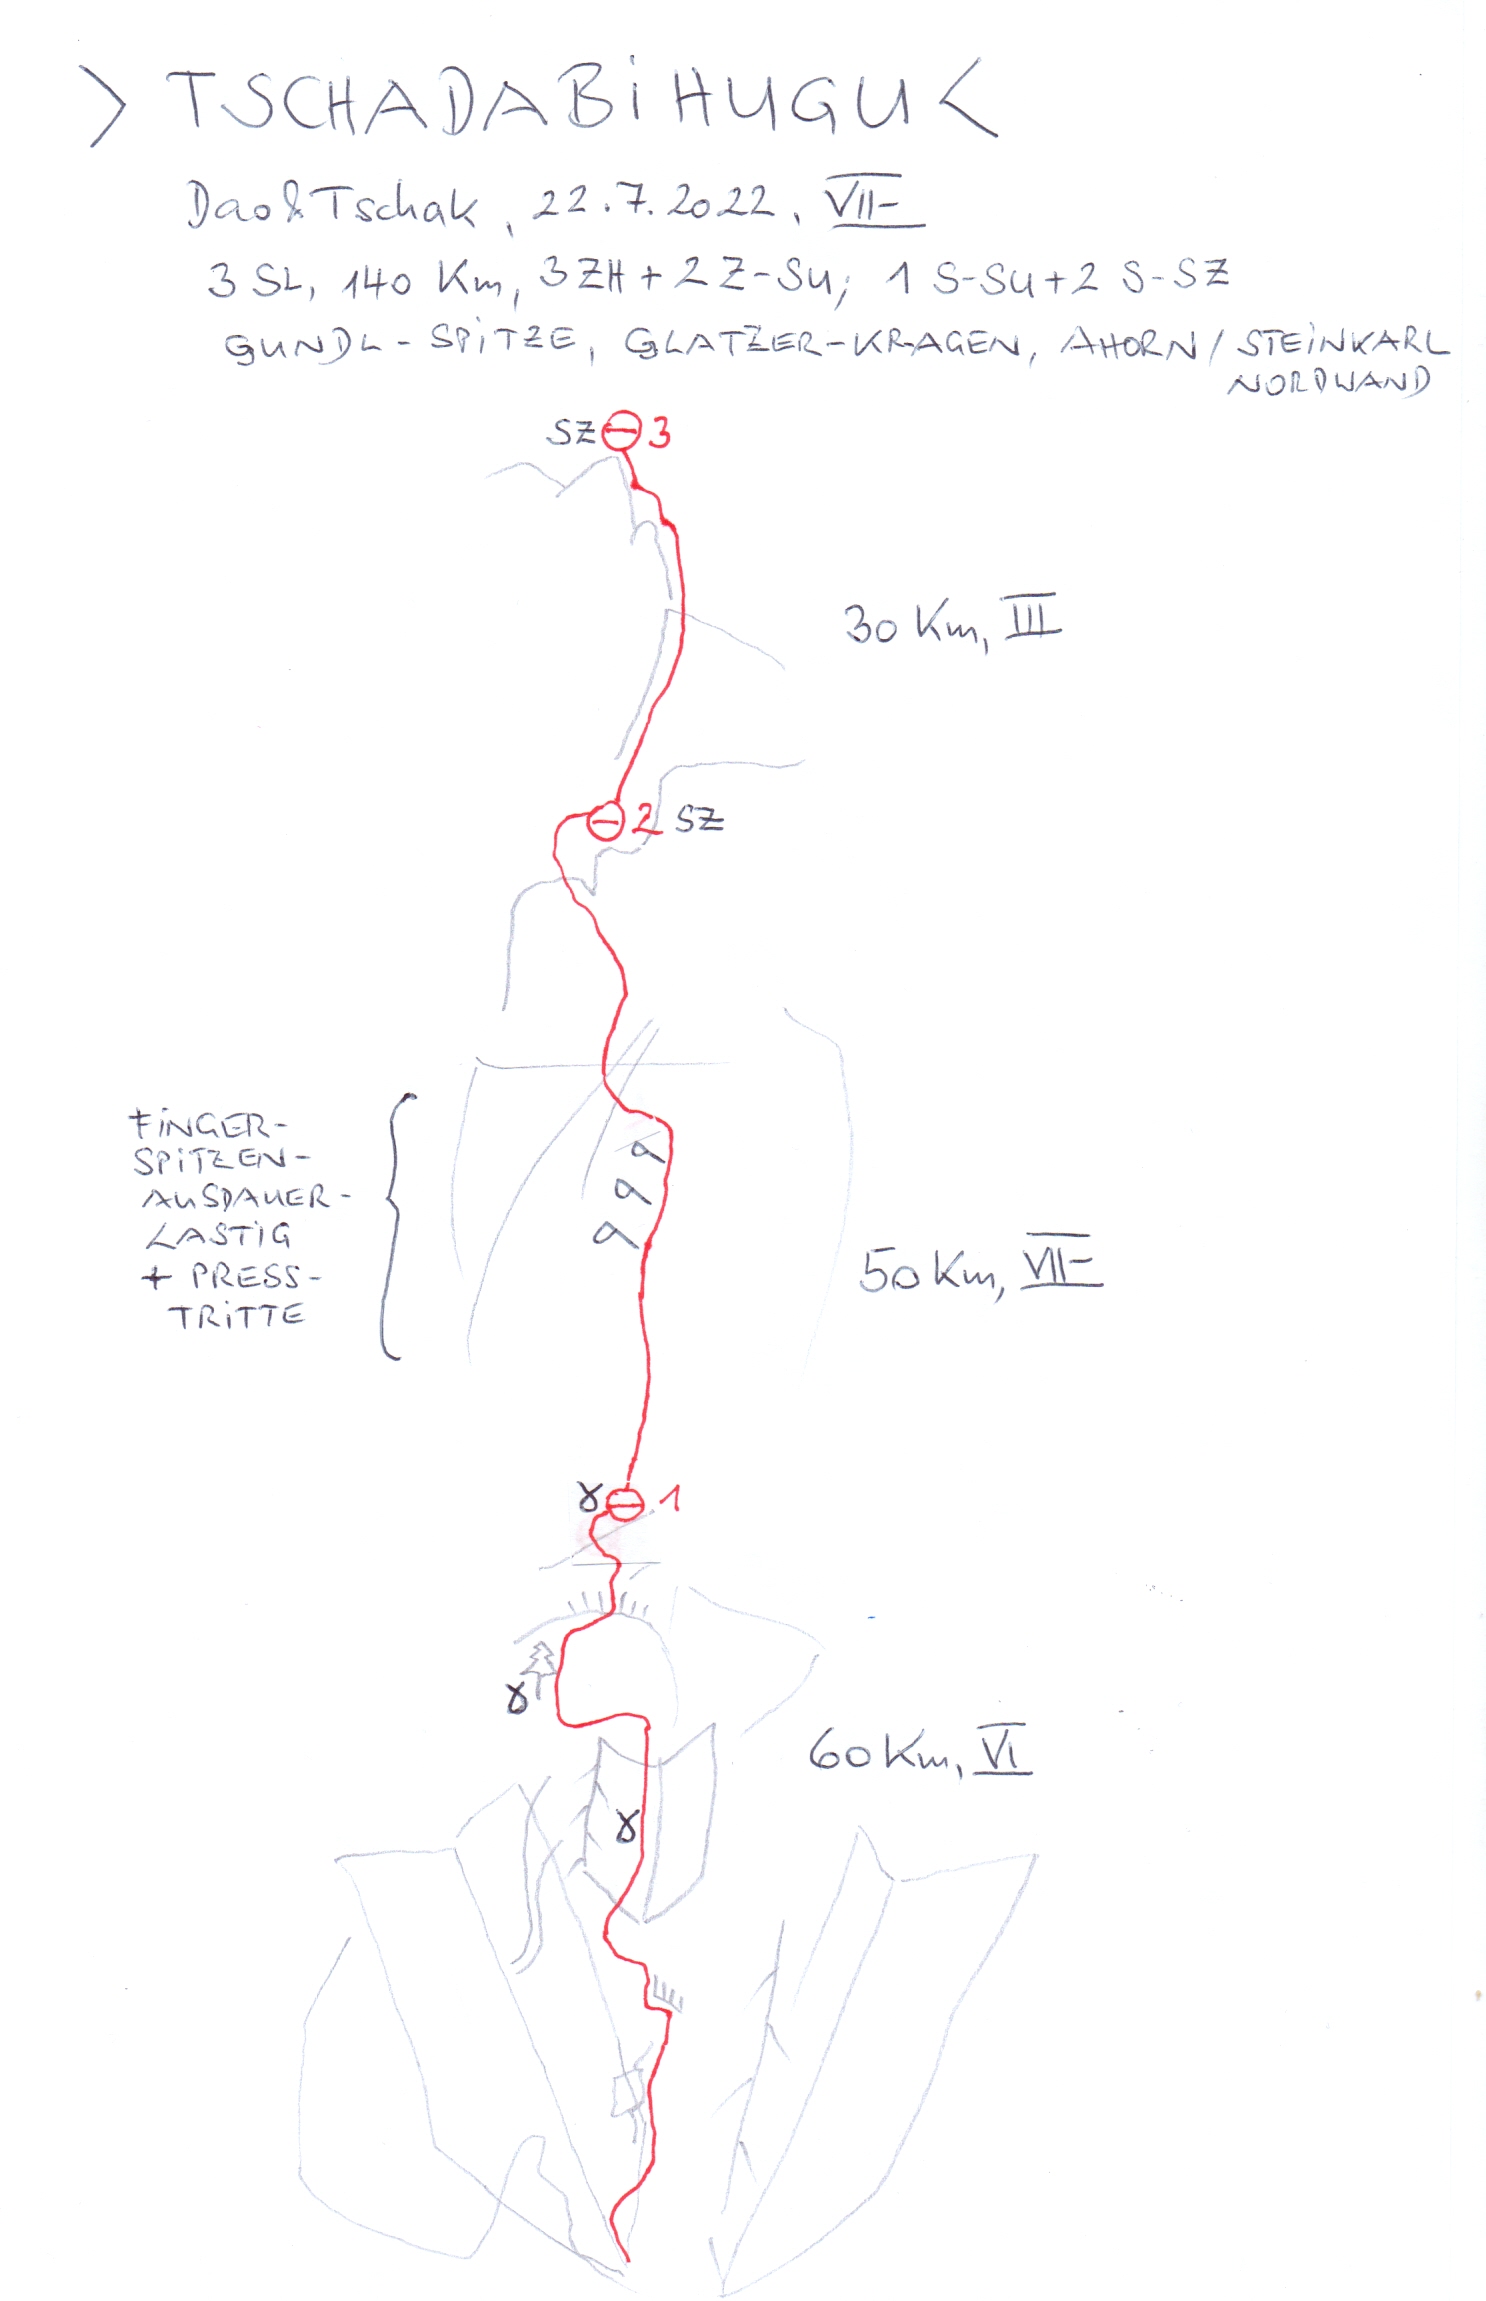 > TSCHADABiHUGU <
Dao&Tschak, 22.7.2022, VII-
3 SL, 140 Km, 3ZH + 2 Z-Su; 1 S-Su+2 S-SZ
GUNDL-SPiTZE, GLATZER-KRAGEN, AHORN/STEiNKARL
NORDWAND
SZ 3
30 Km, III
2 SZ
FiNGER-
SPiTZEN-
AUSDAUER-
LASTiG
+ PRESS-
TRiTTE
50 Km, VII-
1
60 Km, VI